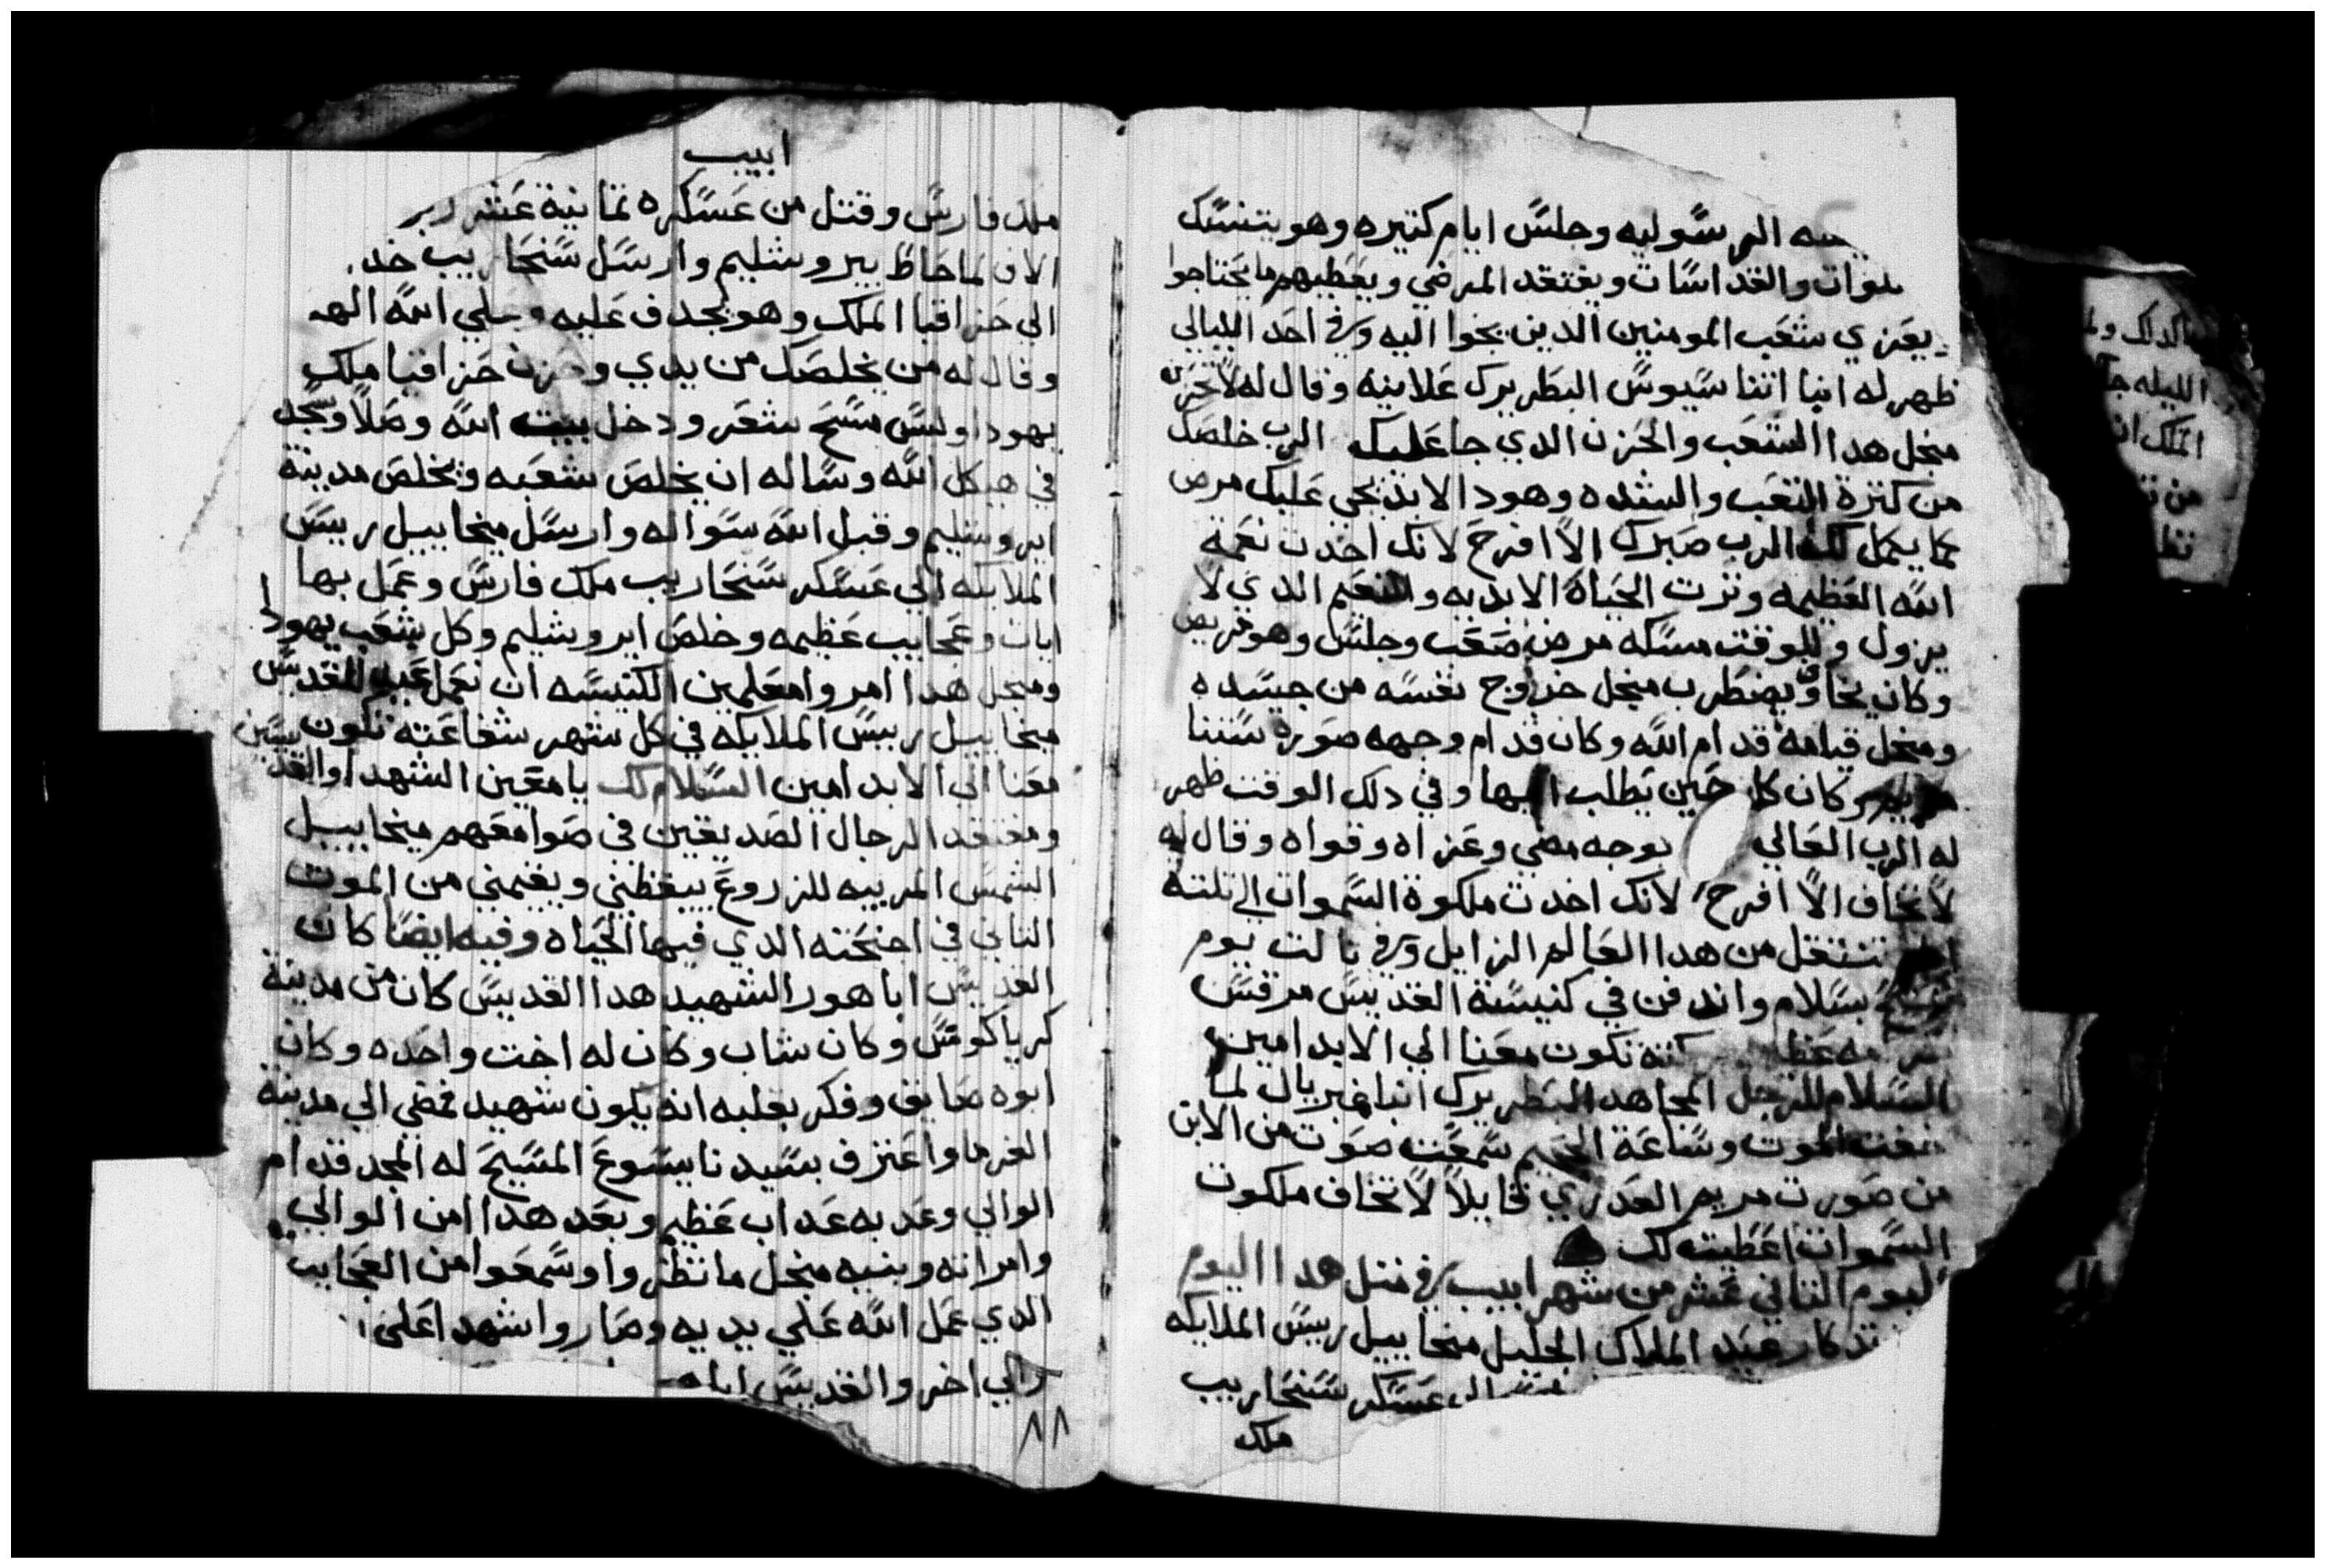 الرسوليه وجلس ايام كتيره وهو يتنسك
والقداسات ويفتقد المرضي ويعطيهم ما يحتاجوا
يعزي شعب المومنين الدين يجوا اليه وفي احد الليالي
ظهر له انبا اتناسيوس البطريرك علانيه وقال له لا تحزن
منجل هدا الشعب والحزن الدي جا عليك الرب خلصك
من كترة التعب والشده وهودا الابد يجي عليك مرض
كما يكمل لك الرب صبرك الا افرح لانك اخدت نعمة
الله العظيمه ونرت الحياة الابديه والنعيم الدي لا
يزول وللوقت مسكه مرض صعب وجلس وهو مريض
وكان يخاف ويضطرب منجل خروج نفسه من جسده
ومنجل قيامه قدام الله وكان قدام وجهه صورة ستنا
مريم وكان كل حين يطلب اليها وفي دلك الوقت ظهر
له الرب العالي بوجه مضي وعزاه وقواه وقال له
لا تخاف الا افرح لانك اخدت ملكوة السموات الي تلتة
تنتقل من هدا العالم الزايل وفي تالت يوم
بسلام واندفن في كنيسة القديس مرقس
تكون معنا الي الابد امين
السلام للرجل المجاهد البطريرك انبا غبريال لما
الموت وساعة الجحيم سمعت صوت من الابن
من صورت مريم العدري قايلا لا تخاف ملكوت
السموات اعطيته لك
اليوم التاني عشر من شهر ابيب في متل هدا اليوم
تدكار عيد الملاك الجليل ميخاييل رييس الملايكه
الي عسكر سنحاريب
ملك
ابيب
ملك فارس وقتل من عسكره تمانية عشر
الاف لما حاط بيروشليم وارسل سنحاريب
الي حزاقيا الملك وهو يجدف عليه وعلي الله الهه
وقال له من يخلصك من يدي وحزن حزاقيا ملك
يهودا ولبس مسح شعر ودخل بيت الله وصلا وسجد
في هيكل الله وساله ان يخلص شعبه ويخلص مدينة
ايروشليم وقبل الله سواله وارسل ميخاييل رييس
الملايكه الي عسكر سنحاريب ملك فارس وعمل بها
ايات وعجايب عظيمه وخلص ايروشليم وكل شعب يهودا
ومنجل هدا امروا معلمين الكنيسه ان نعمل عيد للقديس
ميخاييل رييس الملايكه في كل شهر شفاعته تكون
معنا الي الابد امين السلام لك يا معين الشهدا والقديسين
ومفتقد الرجال الصديقين في صوامعهم ميخاييل
الشمس المربيه للزروع يبقظني ويغنمني من الموت
التاني في اجنحته الدي فيها الحياه وفيه ايضا كان
القديس ابا هور الشهيد هدا القديس كان من مدينة
كرياكوس وكان شاب وكان له اخت واحده وكان
ابوه صايغ وفكر بقلبه انه يكون شهيد فمضي الي مدينة
الفرما واعترف بسيدنا يسوع المسيح له المجد قدام
الوالي وعدبه عداب عظيم وبعد هدا امن الوالي
وامراته وبنيه منجل ما نظروا وسمعوا من العجايب
الدي عمل الله علي يديه وصاروا شهدا علي
والي اخر والقديس ابا
٨٨